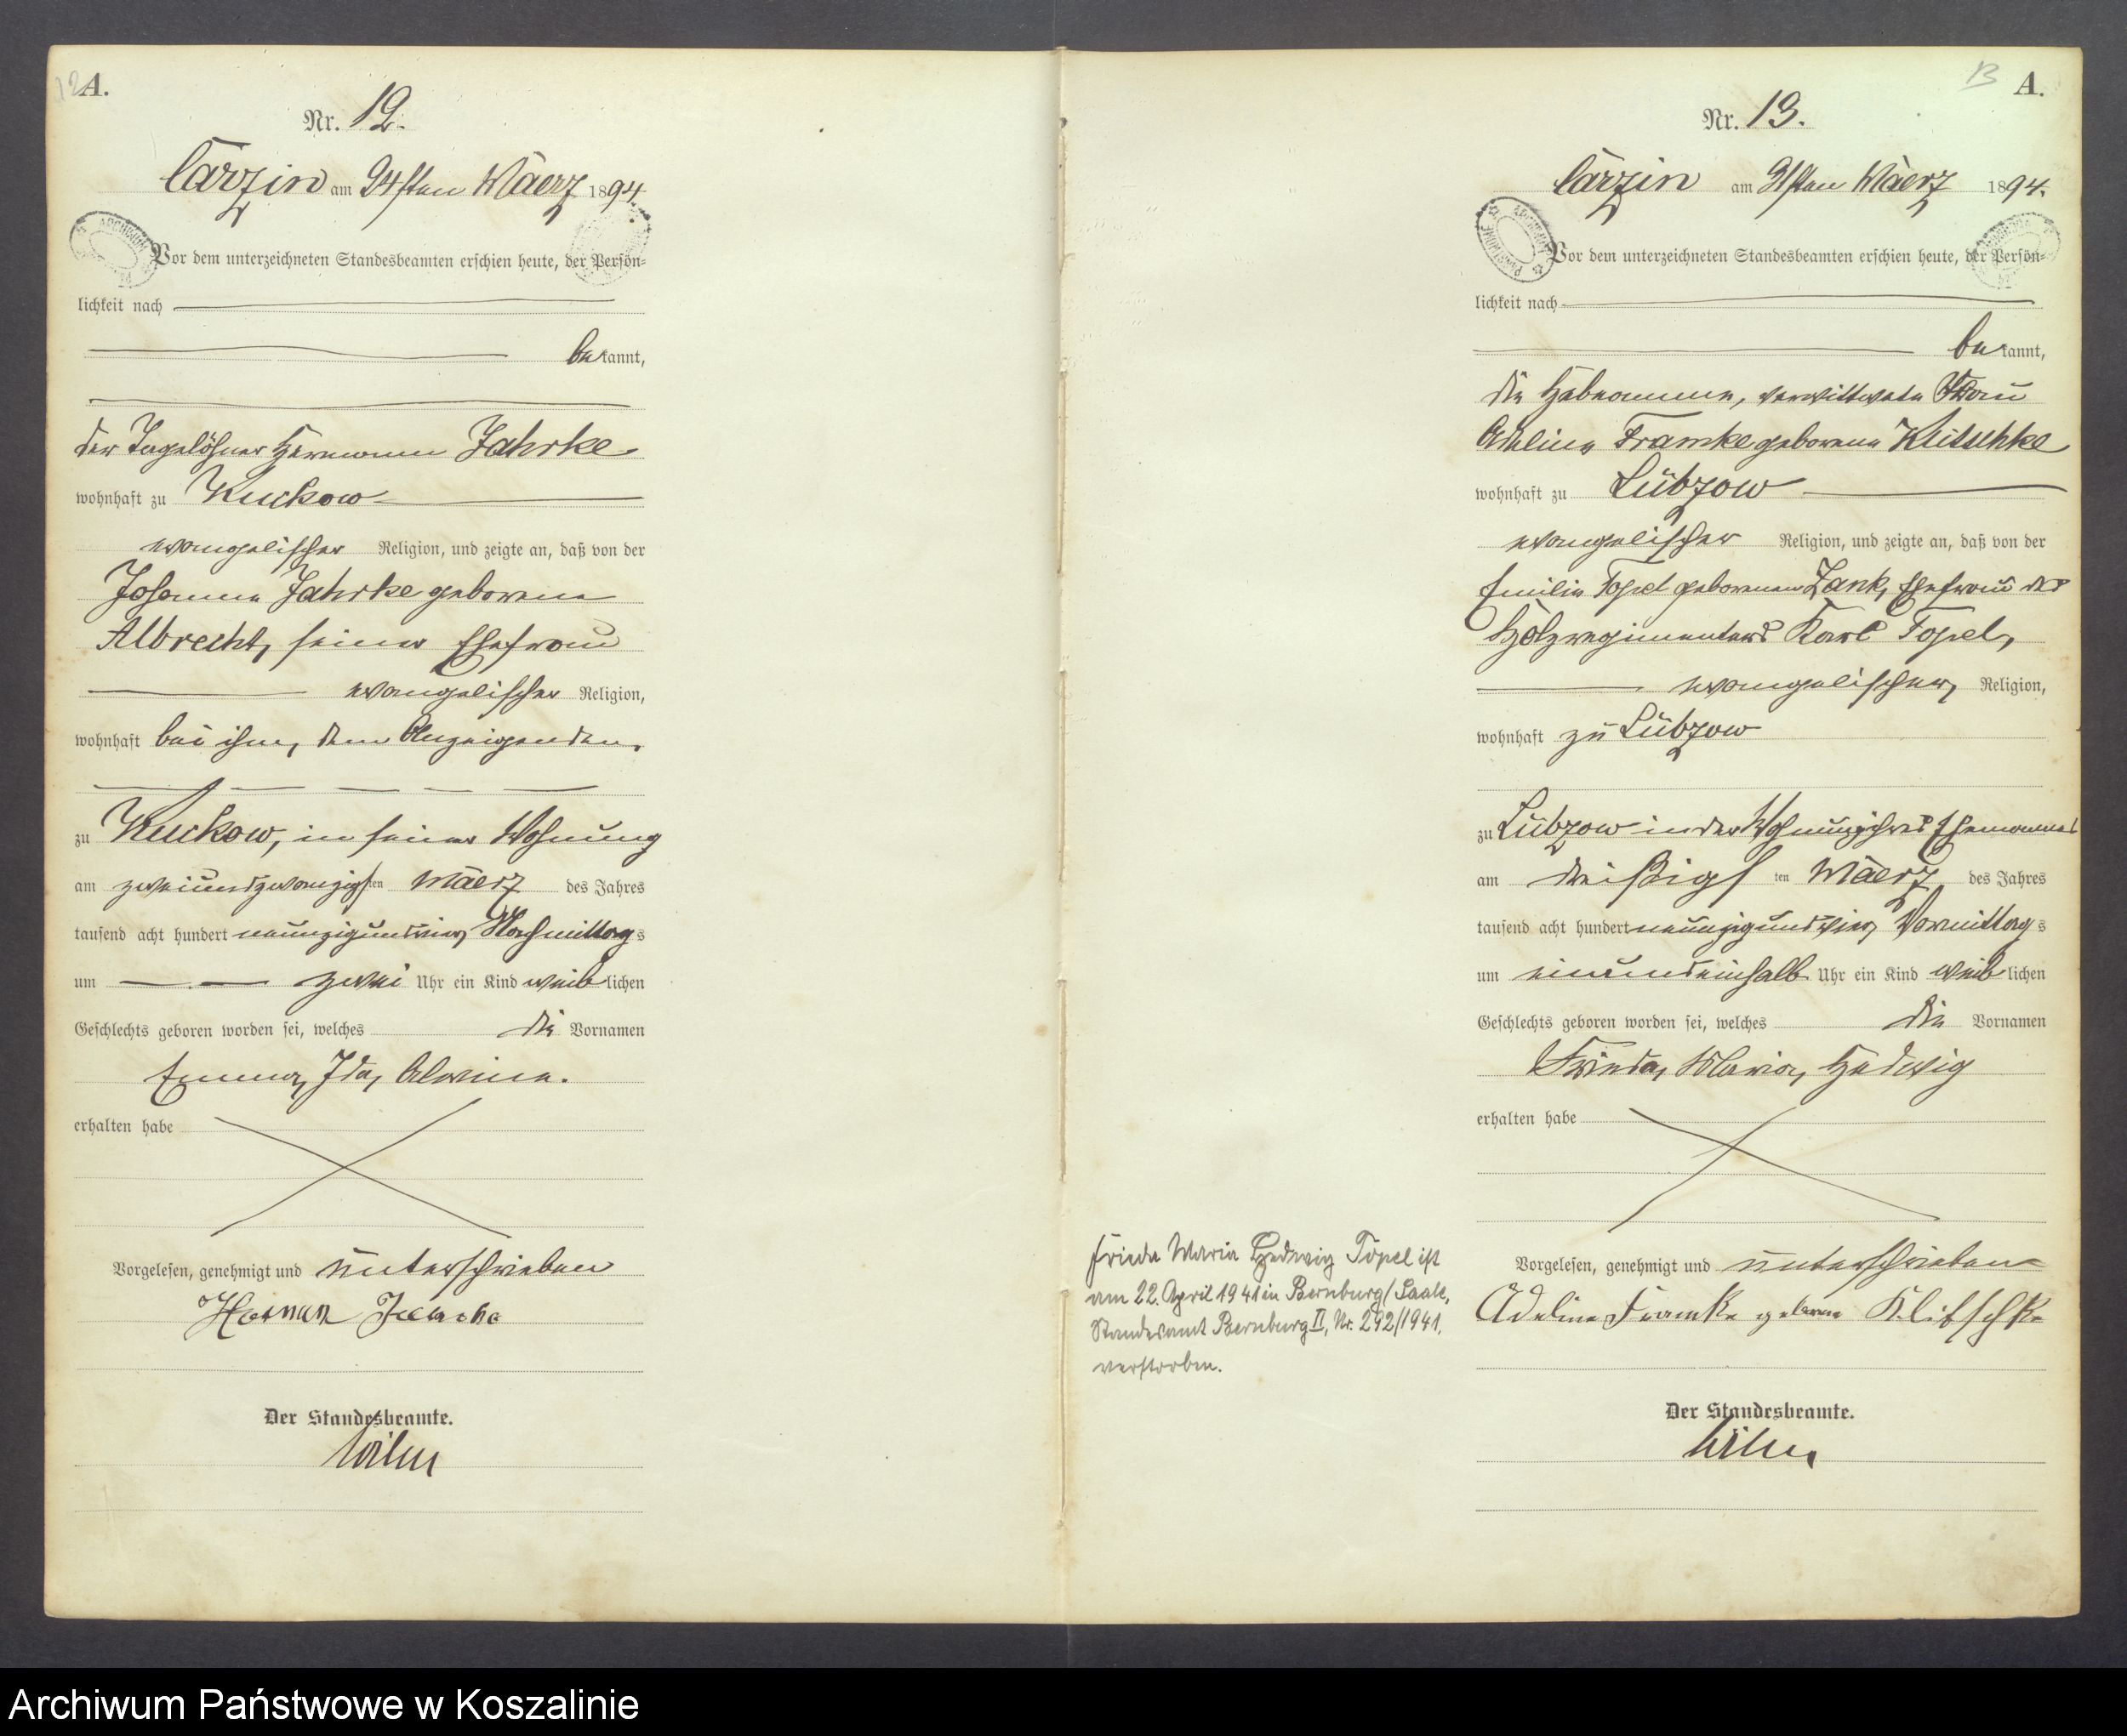 12 A.
Nr. 12.
Carzin am 24sten Maerz 1894.
Vor dem unterzeichneten Standesbeamten erschien heute, der Persön-
lichkeit nach
bekannt,
der Tagelöhner Hermann Jahrke
wohnhaft zu Kuckow
evangelischer Religion, und zeigte an, daß von der
Johanna Jahrke geborene
Albrecht, seiner Ehefrau
evangelischer Religion,
wohnhaft bei ihm, dem Anzeigenden,
zu Kuckow, in seiner Wohnung
am zweiundzwanzigsten Maerz des Jahres
tausend acht hundert neunzigundvier, Nachmittags
um zwei Uhr ein Kind weiblichen
Geschlechts geboren worden sei, welches die Vornamen
Emma, Ida, Alwine.
erhalten habe
Vorgelesen, genehmigt und unterschrieben
Herman
Der Standesbeamte.
13 A.
Nr. 13.
Carzin am 31sten Maerz 1894.
Vor dem unterzeichneten Standesbeamten erschien heute, der Persön-
lichkeit nach
bekannt,
die Hebeamme, verwittwete Frau
Adeline Framke geborene Klitschke
wohnhaft zu Lübzow
evangelischer Religion, und zeigte an, daß von der
Emilie Topel geborenen Zank, Ehefrau des
Holzregimenters Karl Topel,
evangelischer, Religion,
wohnhaft zu Lübzow
zu Lübzow in der Wohnung ihres Ehemannes
am dreißigsten Maerz des Jahres
tausend acht hundert neunzigundvier, Vormittags
um einundeinhalb Uhr ein Kind weiblichen
Geschlechts geboren worden sei, welches die Vornamen
Frieda, Maria, Hedwig
erhalten habe
Vorgelesen, genehmigt und unterschrieben
Adeline Framke geborne Klitschke
Der Standesbeamte.
Frieda Maria Hedwig Topel ist
am 22. April 1941 in Bernburg/Saale,
Standesamt Bernburg II, Nr. 292/1941,
verstorben.
Archiwum Państwowe w Koszalinie